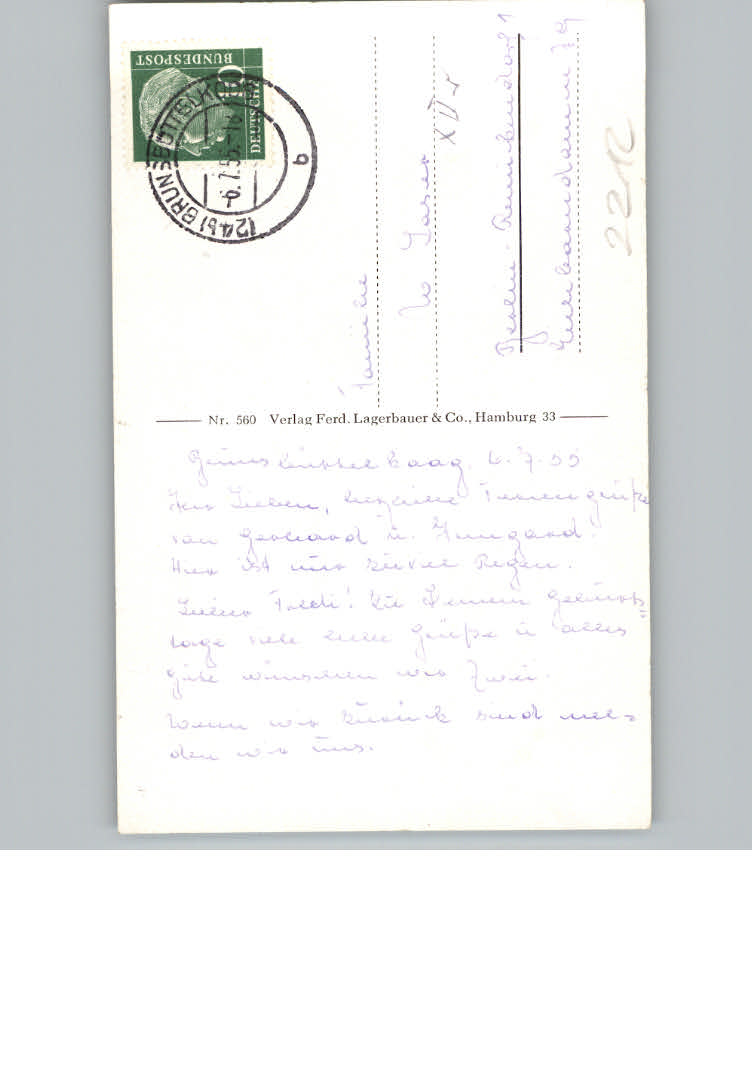 DEUTSCHE
BUNDESPOST
10
(24b) BRUNSBÜTTELKOOG
6.7.55.-16
a
Familie
W
XII r
Berlin - Reinickendorf 1
79
2212
Nr. 560 Verlag Ferd. Lagerbauer & Co., Hamburg 33
Brunsbüttelkoog, 6.7.55
Ihr Lieben, herzliche Feriengrüße
von Gerhard u. Irmgard!
Hier ist nur zuviel Regen.
Lieber! Zu Deinem Geburts=
tage viele liebe Grüße u alles
gute wünschen wir Zwei.
Wenn wir zurück sind mel-
den wir uns.